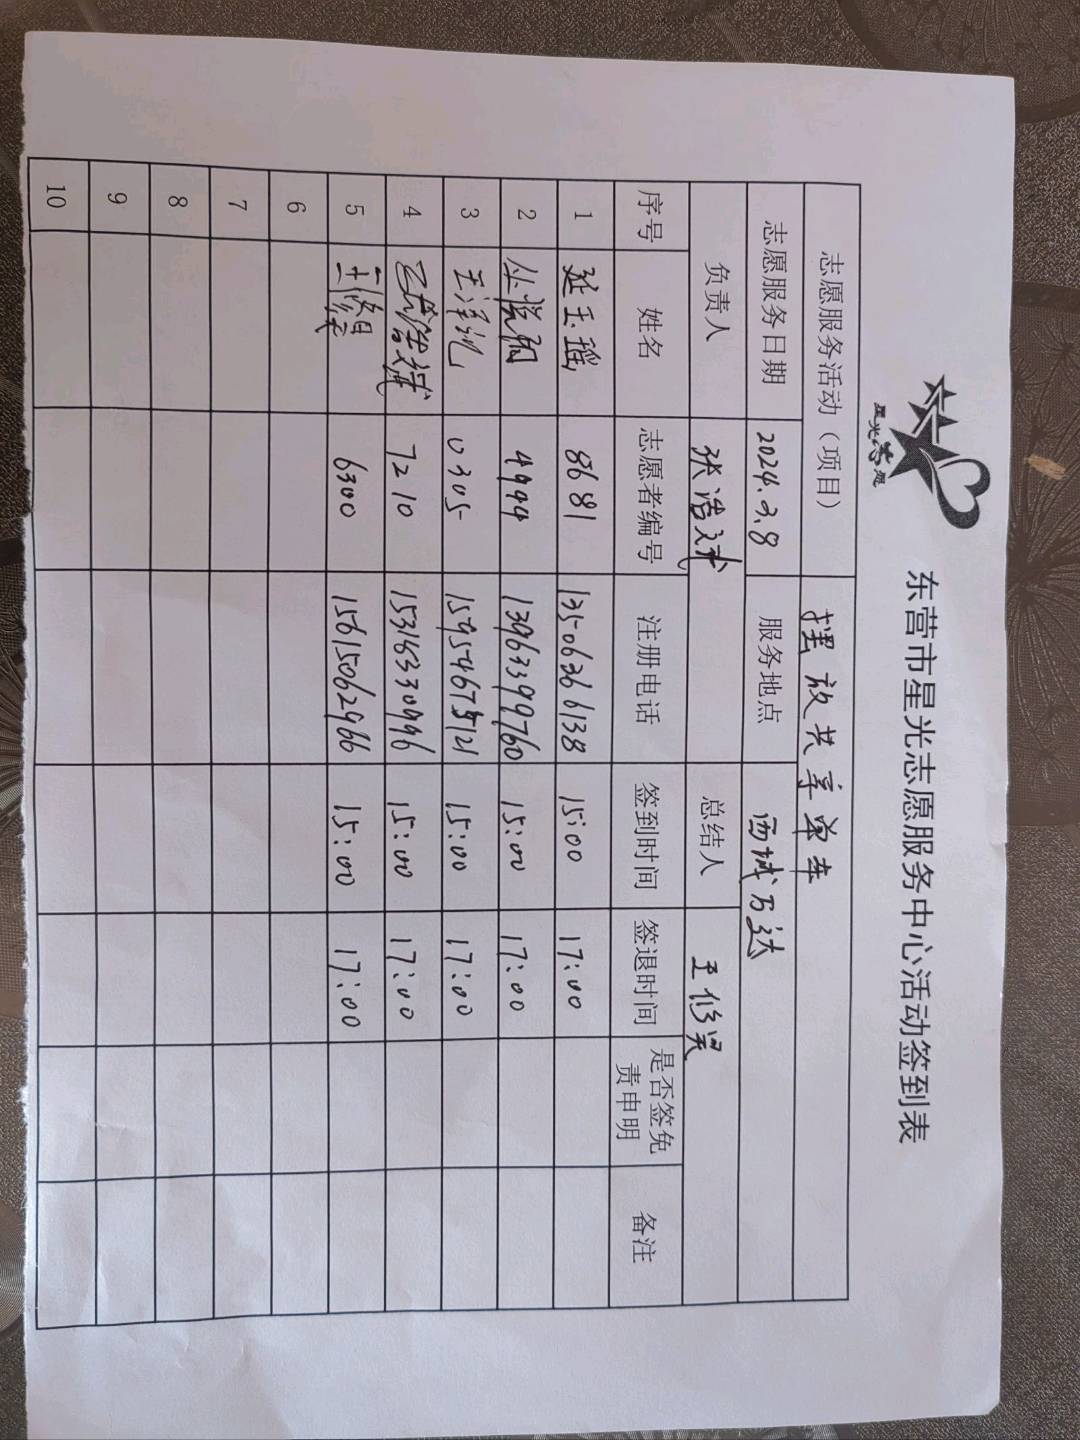 星光志愿
东营市星光志愿服务中心活动签到表
志愿服务活动（项目） 摆放共享单车
志愿服务日期 2024.3.8 服务地点 西城万达
负责人 张浩斌 总结人 王修昊
序号 姓名 志愿者编号 注册电话 签到时间 签退时间 是否签免责申明 备注
1 延玉瑶 8681 13506366138 15:00 17:00
2 4994 13963399760 15:00 17:00
3 王泽凯 0305 15:00 17:00
4 7210 15316330996 15:00 17:00
5 王修昊 6300 15615062966 15:00 17:00
6
7
8
9
10